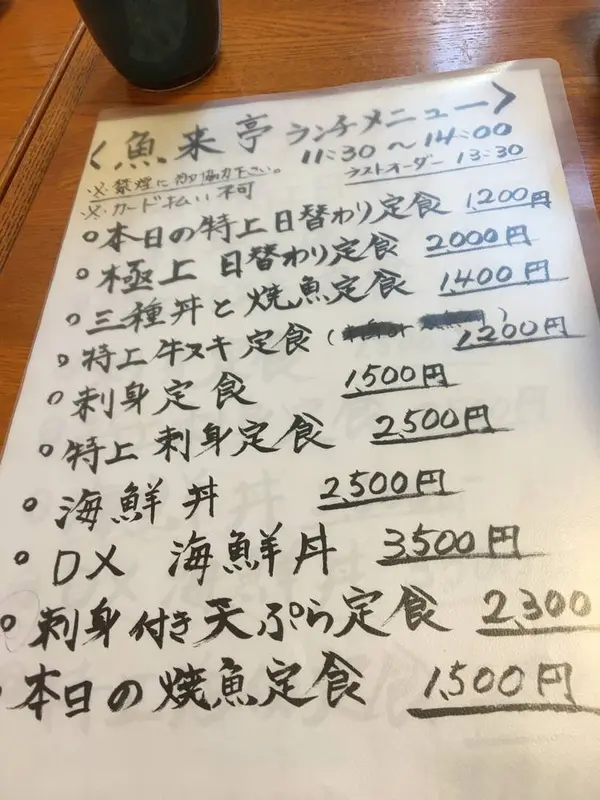 〈魚来亭 ランチメニュー〉
11:30〜14:00
ラストオーダー 13:30
※禁煙に御協力下さい。
※カード払い不可
○本日の特上日替わり定食 1,200円
○極上 日替わり定食 2,000円
○三種丼と焼魚定食 1,400円
○特上牛スキ定食( ) 1,200円
○刺身定食 1,500円
○特上 刺身定食 2,500円
○海鮮丼 2,500円
○DX 海鮮丼 3,500円
○刺身付き天ぷら定食 2,300
○本日の焼魚定食 1,500円